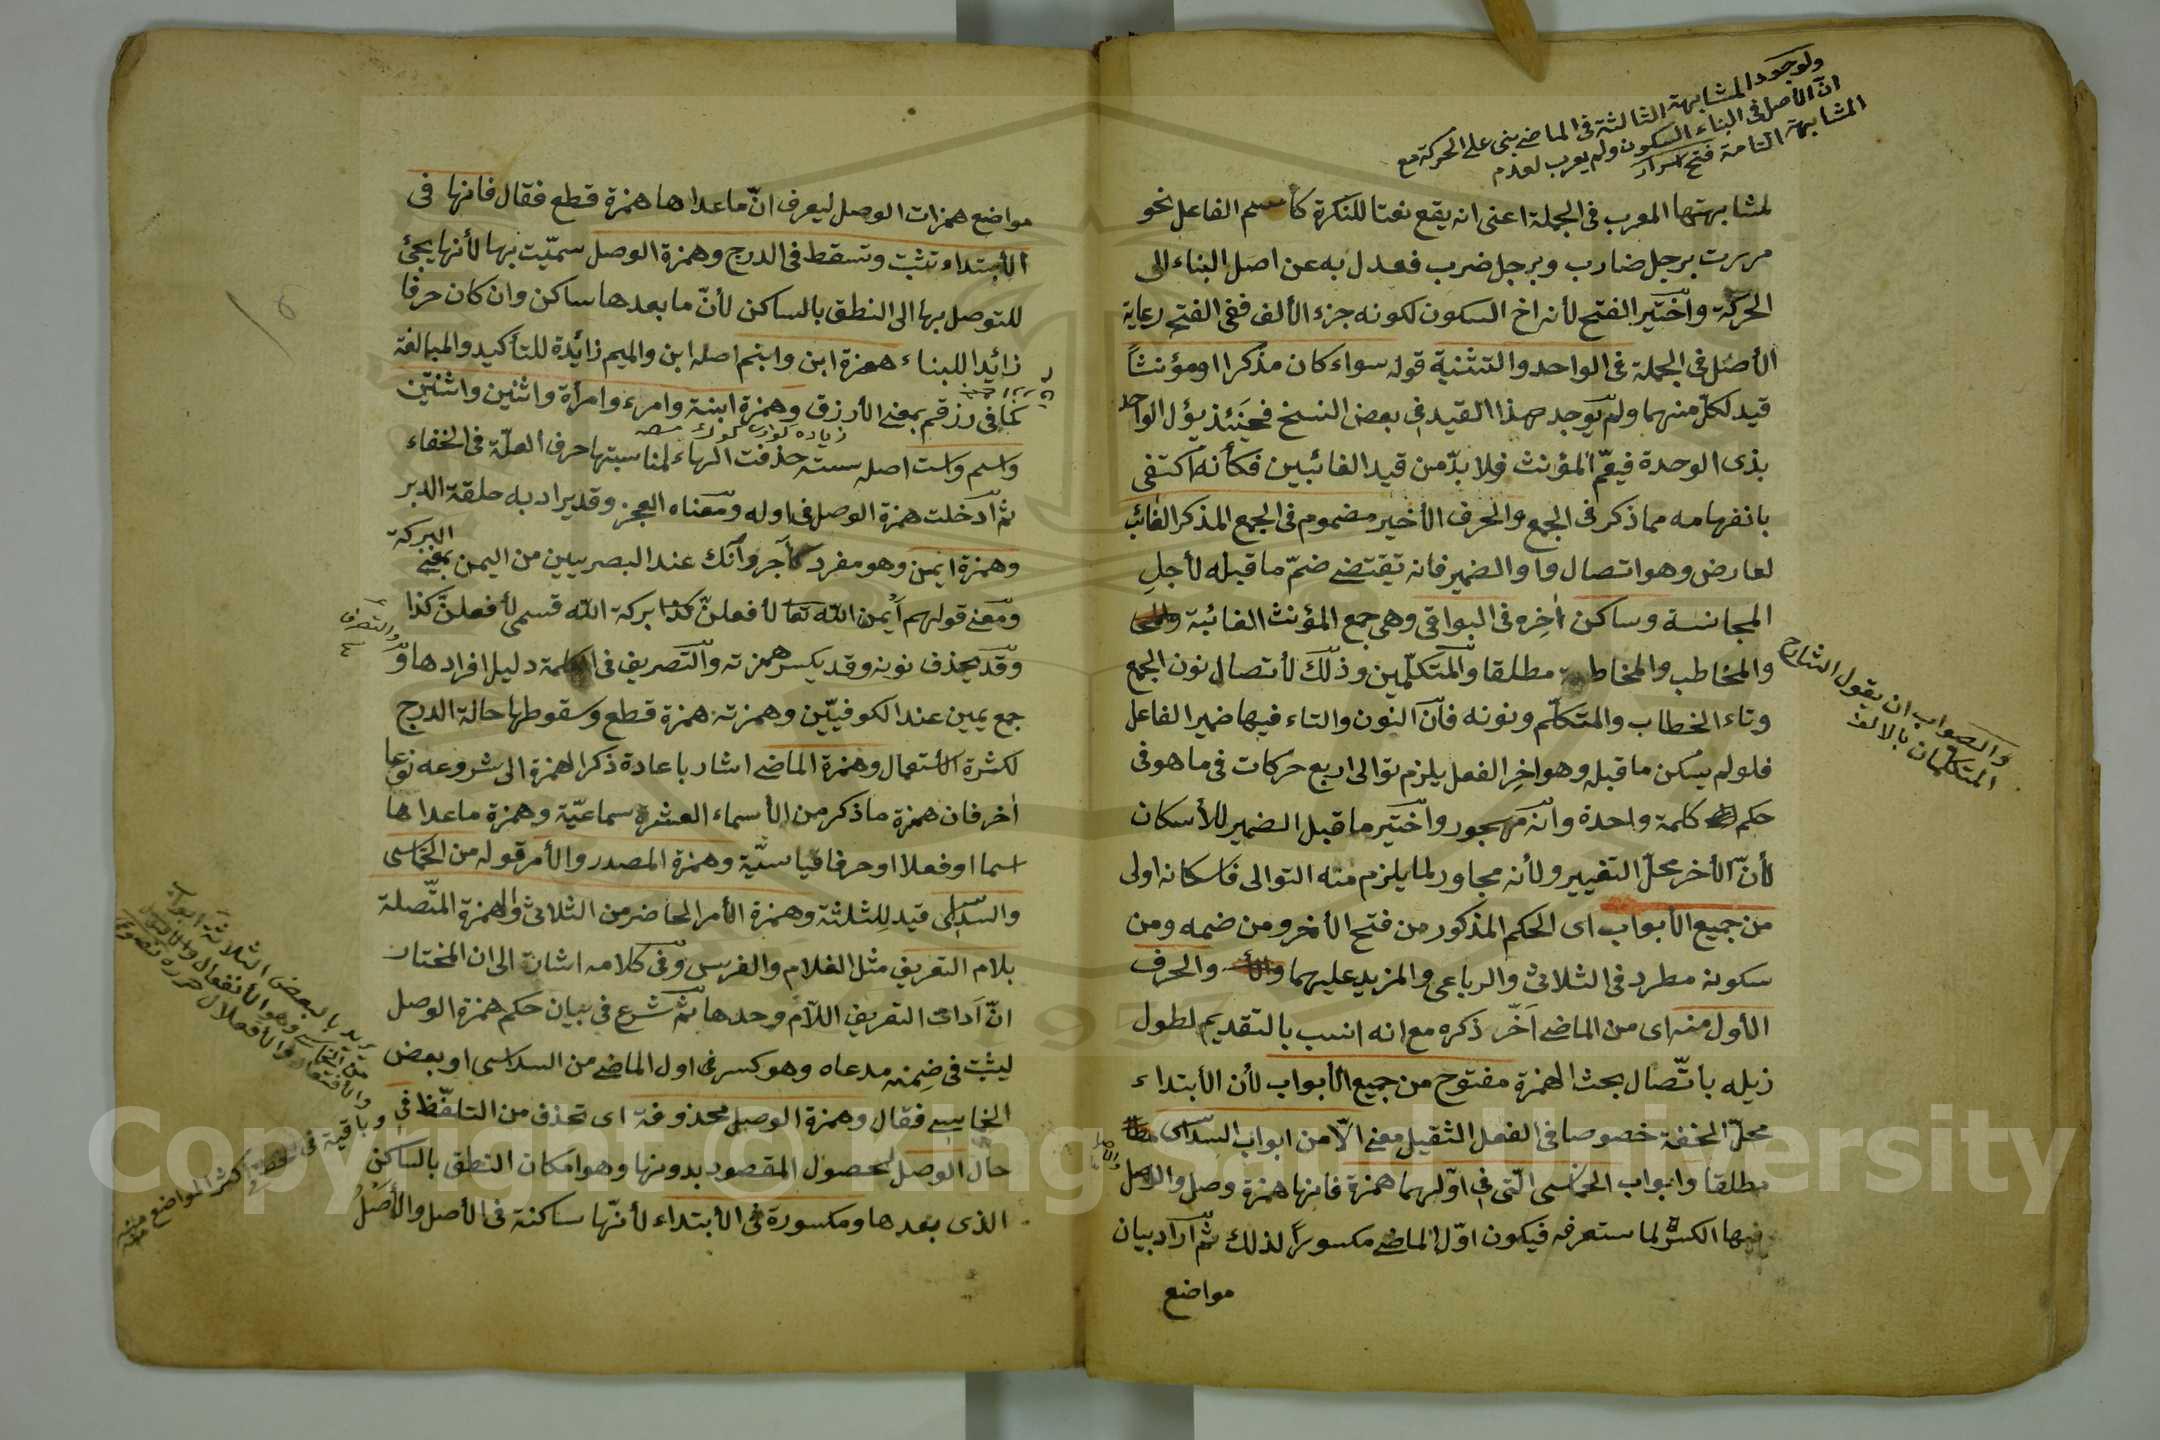 ولوجود المشابهة الثالثة فى الماضى بنى على الحركة مع
ان الأصل فى البناء السكون ولم يعرب لعدم
المشابهة التامة فتح اسرار
لمشابهتها المعرب فى الجملة اعنى انه يقع نعتا للنكرة كأسم الفاعل نحو
مررت برجل ضارب وبرجل ضرب فعدل به عن اصل البناء الى
الحركة واختير الفتح لأنه اخ السكون لكونه جزء الألف ففى الفتح رعاية
الأصل فى الجملة فى الواحد والتثنية قوله سواء كان مذكرا او مؤنثاً
قيد لكلّ منهما ولم يوجد هذا القيد فى بعض النسخ فحينئذ يؤل الواحد
بذى الوحدة فيعمّ المؤنث فلا بدّ من قيد الغائبين فكأنه اكتفى
بانفهامه مما ذكر فى الجمع والحرف الأخير مضموم فى الجمع المذكر الغائب
لعارض وهو اتصال واو الضمير فانه تقتضى ضمّ ما قبله لأجل
المجانسة وساكن اخره فى البواقى وهى جمع المؤنث الغائبة
والمخاطب والمخاطبة مطلقا والمتكلّمين وذلك لأتصال نون الجمع
وتاء الخطاب والمتكلّم ونونه فأن النون والتاء فيها ضمير الفاعل
فلو لم يسكن ما قبله وهو اخر الفعل يلزم توالى اربع حركات فى ما هو فى
حكم كلمة واحدة وانه مهجور واختير ما قبل الضمير للأسكان
لأنّ الأخر محلّ التغيير ولأنه مجاور لما يلزم منه التوالى فاسكانه اولى
من جميع الأبواب اى الحكم المذكور من فتح الأخر ومن ضمه ومن
سكونه مطرد فى الثلاثى والرباعى والمزيد عليهما والحرف
الأول منه اى من الماضى اخّر ذكره مع انه انسب بالتقديم لطول
ذيله باتّصال بحث الهمزة مفتوح من جميع الأبواب لأن الأبتداء
محلّ الخفة خصوصا فى الفعل الثقيل معنى الّا من ابواب السداسى
مطلقا وابواب الخماسى الّتى فى اوّلهما همزة فانها همزة وصل والاصل
فيها الكسر لما ستعرفه فيكون اوّل الماضى مكسوراً لذلك ثمّ اراد بيان
مواضع
والصواب ان يقول الشارح
المتكلمان بالالف
مواضع همزات الوصل ليعرف انّ ما عداها همزة قطع فقال فانها فى
الأبتداء تثبت وتسقط فى الدرج وهمزة الوصل سمّيت بها لأنها يجئ
للتوصل بها الى النطق بالساكن لأنّ ما بعدها ساكن وان كان حرفا
زائدا للبناء همزة ابن وابنم اصله ابن والميم زائدة للتأكيد والمبالغة
كما فى رزقم بمعنى الأزرق وهمزة ابنة وامرء وامرأة واثنين واثنتين
واسم واست اصله سته حذفت الهاء لمناسبتها حرف العلّة فى الخفاء
ثم ادخلت همزة الوصل فى اوله ومعناه العجز وقد يراد به حلقة الدبر
وهمزة ايمن وهو مفرد كآجر وآنك عند البصريين من اليمن بمعنى البركة
ومعنى قولهم أيمن اللّه تعا لأفعلنّ كذا بركة اللّه قسمى لأفعلنّ كذا
وقد يحذف نونه وقد يكسر همزته والتصريف فى الكلمة دليل افرادها و
والتصرف
جمع يمين عند الكوفيّين وهمزته همزة قطع وسقوطها حالة الدرج
لكثرة الأستعمال وهمزة الماضى اشار باعادة ذكر الهمزة الى شروعه نوعا
اخر فان همزة ما ذكر من الأسماء العشرة سماعيّة وهمزة ما عداها
اسما او فعلا او حرفا قياسيّة وهمزة المصدر والأمر قوله من الخماسى
والسداسى قيد للثلثة وهمزة الأمر الحاضر من الثلاثى والهمزة المتّصلة
بلام التعريف مثل الغلام والفرس وفى كلامه اشارة الى ان المختار
انّ اداة التعريف اللّام وحدها ثم شرع فى بيان حكم همزة الوصل
ليثبت فى ضمنه مدعاه وهو كسر فى اول الماضى من السداسى او بعض
الخماسى فقال وهمزة الوصل محذوفة اى تحذف من التلفّظ فى
حال الوصل لحصول المقصود بدونها وهو امكان النطق بالساكن
الذى بعدها ومكسورة فى الأبتداء لأنّها ساكنة فى الأصل والأصلُ
يريد بالبعض الثلاثة ابواب
من الخماسى وهو الأنفعال
والأفتعال والأفعلال
وباقية فى الخط فى اكثر المواضع منه